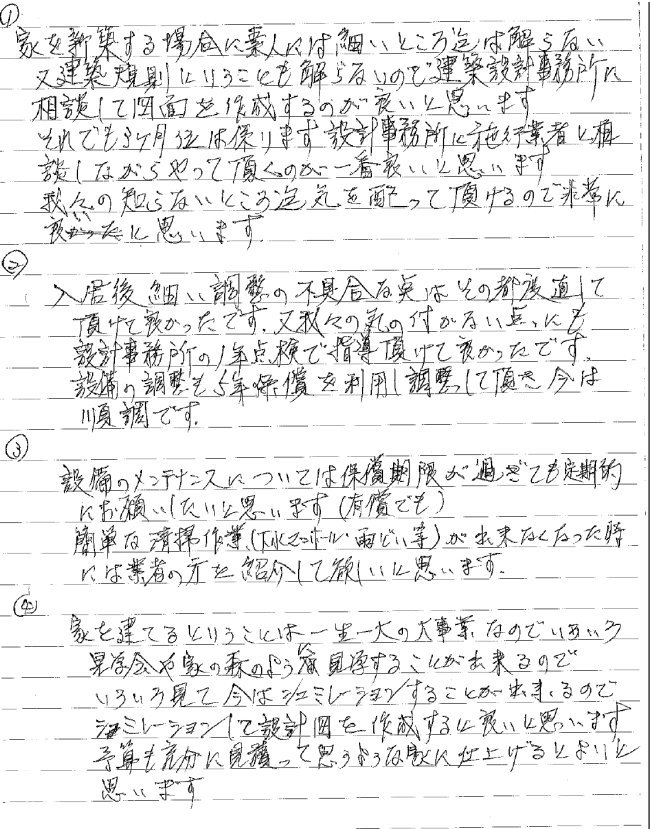 ①
家を新築する場合に素人には細いところ迄は解らない
又建築規則ということも解らないので建築設計事務所に
相談して図面を作成するのが良いと思います
それでも3ヶ月位は係ります設計事務所に施行業者と相
談しながらやって頂くのが一番良いと思います
我々の知らないところ迄気を配って頂けるので非常に
良いと思います
②
入居後細い調整の不具合な点はその都度直して
頂けて良かったです.又我々の気の付かない点にも
設計事務所の1年点検で指導頂けて良かったです.
設備の調整も5年保償を利用し調整して頂き今は
順調です.
③
設備のメンテナンスについては保償期限が過ぎても定期的
にお願いしたいと思います(有償でも)
簡単な清掃作業(下水マンホール・雨どい等)が出来なくなった時
には業者の方を紹介して欲しいと思います.
④
家を建てるということは一生一大の大事業なのでいろいろ
見学会や家の森のよう 見学することが出来るので
いろいろ見て今はシュミレーションすることが出来るので
シュミレーションして設計図を作成すると良いと思います
予算も充分に見積って思うような家に仕上げるとよいと
思います